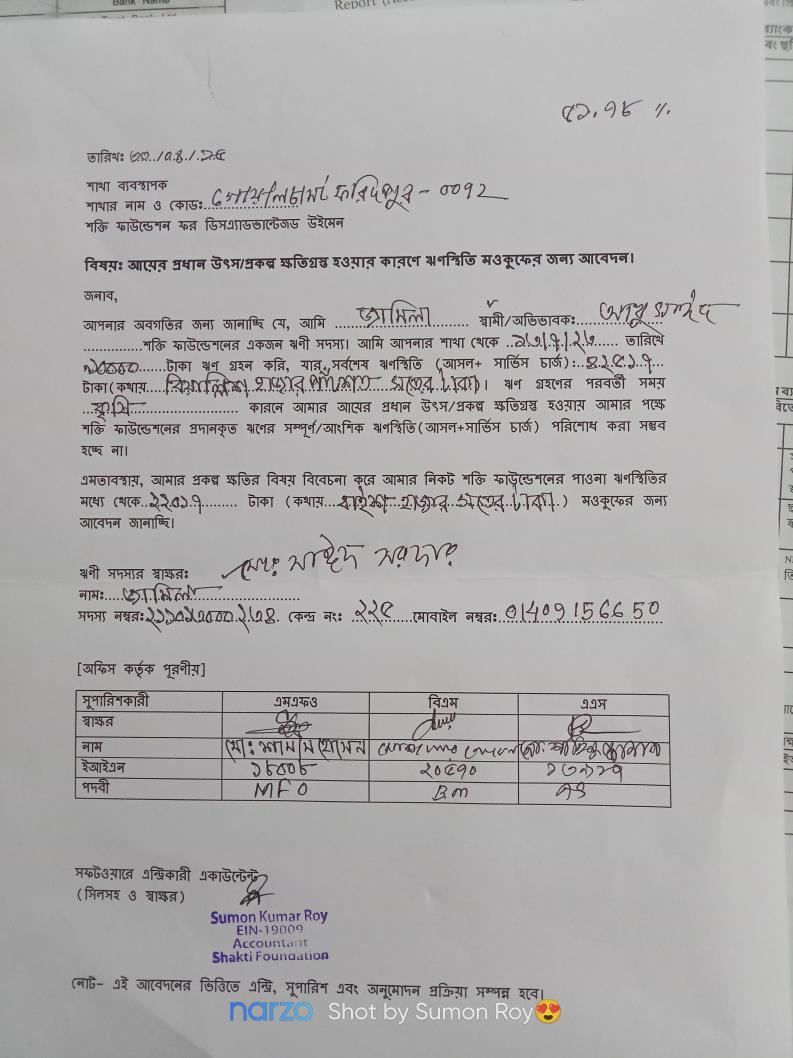 Bank Name
Report
৫১.৭৮ %
তারিখঃ
শাখা ব্যবস্থাপক
শাখার নাম ও কোডঃ গোয়ালচামট ফরিদপুর - 0092
শক্তি ফাউন্ডেশন ফর ডিসএ্যাডভান্টেজড উইমেন
বিষয়ঃ আয়ের প্রধান উৎস/প্রকল্প ক্ষতিগ্রস্থ হওয়ার কারণে ঋণস্থিতি মওকুফের জন্য আবেদন।
জনাব,
আপনার অবগতির জন্য জানাচ্ছি যে, আমি জামিলা স্বামী/অভিভাবকঃ আবু সাঈদ
শক্তি ফাউন্ডেশনের একজন ঋণী সদস্য। আমি আপনার শাখা থেকে তারিখে
টাকা ঋণ গ্রহন করি, যার সর্বশেষ ঋণস্থিতি (আসল+ সার্ভিস চার্জ)ঃ ৪২৫১৭
টাকা(কথায় বিয়াল্লিশ হাজার পাঁচশত সতের টাকা)। ঋণ গ্রহনের পরবর্তী সময়
কৃষি কারনে আমার আয়ের প্রধান উৎস/প্রকল্প ক্ষতিগ্রস্থ হওয়ায় আমার পক্ষে
শক্তি ফাউন্ডেশনের প্রদানকৃত ঋণের সম্পূর্ণ/আংশিক ঋণস্থিতি(আসল+সার্ভিস চার্জ) পরিশোধ করা সম্ভব
হচ্ছে না।
এমতাবস্থায়, আমার প্রকল্প ক্ষতির বিষয় বিবেচনা করে আমার নিকট শক্তি ফাউন্ডেশনের পাওনা ঋণস্থিতির
মধ্যে থেকে ২২০১৭ টাকা (কথায় বাইশ হাজার সতের টাকা) মওকুফের জন্য
আবেদন জানাচ্ছি।
ঋণী সদস্যর স্বাক্ষরঃ মোঃ সাঈদ সরদার
নামঃ জামিলা
সদস্য নম্বরঃ কেন্দ্র নং: ২২৫ মোবাইল নম্বরঃ 01409156650
[অফিস কর্তৃক পূরনীয়]
সুপারিশকারী এমএফও বিএম এএস
স্বাক্ষর
নাম মোঃ
ইআইএন ১৮০০৮ ২০৫৭০
পদবী MFO BM AS
সফটওয়ারে এন্ট্রিকারী একাউন্টেন্ট
(সিলসহ ও স্বাক্ষর)
Sumon Kumar Roy
EIN-19009
Accountant
Shakti Foundation
নোট- এই আবেদনের ভিত্তিতে এন্ট্রি, সুপারিশ এবং অনুমোদন প্রক্রিয়া সম্পন্ন হবে।
narzo Shot by Sumon Roy😍